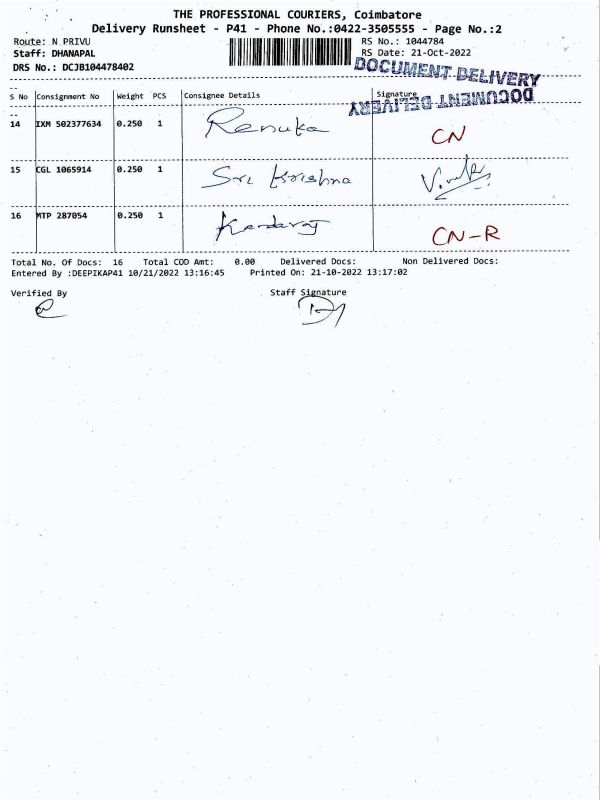 THE PROFESSIONAL COURIERS, Coimbatore
Delivery Runsheet - P41 - Phone No.:0422-3505555 - Page No.:2
Route: N PRIVU RS No.: 1044784
Staff: DHANAPAL RS Date: 21-Oct-2022
DRS No.: DCJB104478402
DOCUMENT DELIVERY
DOCUMENT DELIVERY
S No Consignment No Weight PCS Consignee Details Signature
14 IXM 502377634 0.250 1 Renuka CN
15 CGL 1065914 0.250 1 Sri Krishna
16 MTP 287054 0.250 1 CN-R
Total No. Of Docs: 16 Total COD Amt: 0.00 Delivered Docs: Non Delivered Docs:
Entered By :DEEPIKAP41 10/21/2022 13:16:45 Printed On: 21-10-2022 13:17:02
Verified By Staff Signature